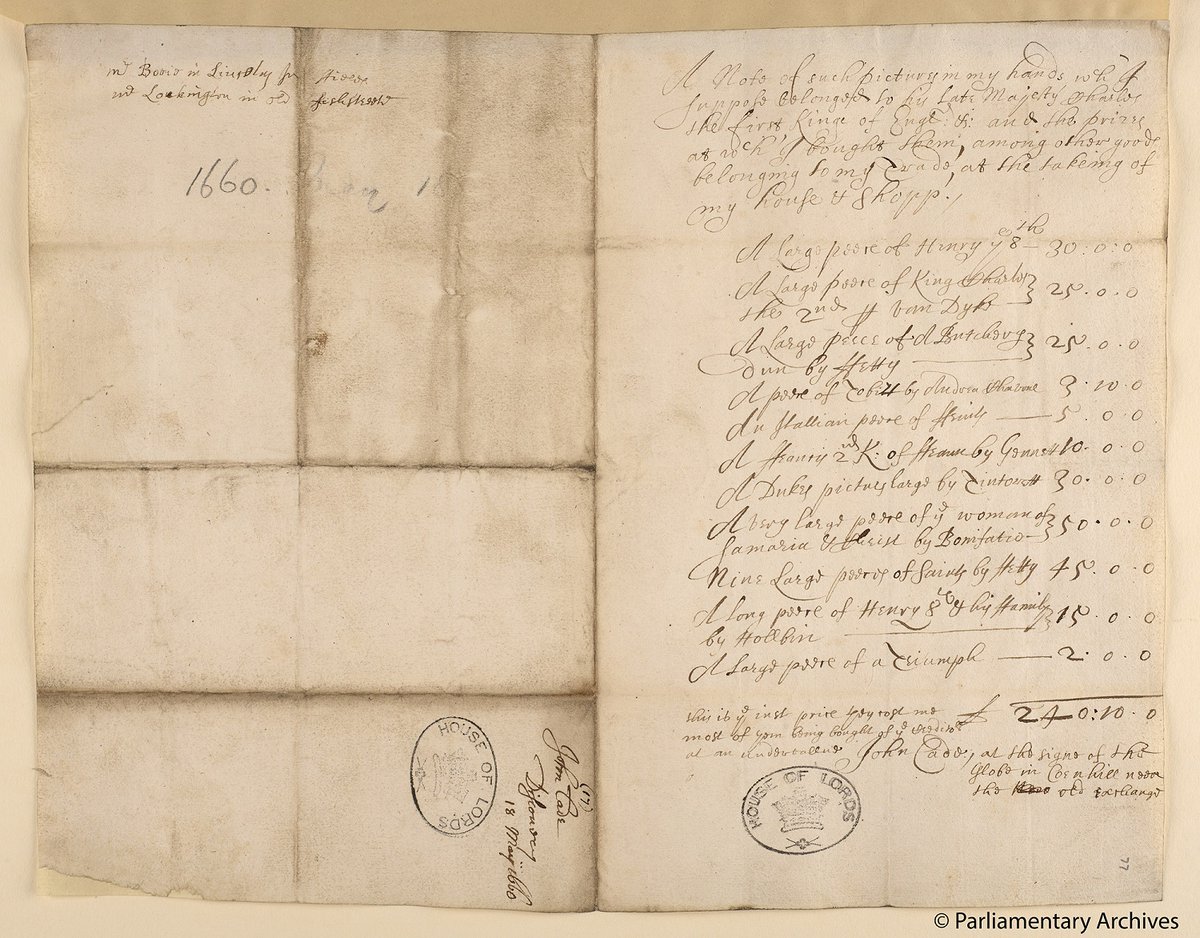 mr Bovis in Lincolns Inn ffields
mr Lockington in old fishstreete
1660. May 18
A Note of such pictures in my hands wh: I
suppose belonged to his late Majesty Charles
the first Kinge of Engl: &: and the prizes
at wch I bought them, among other goods
belonging to my Trade, at the takeing of
my house & Shopp.,
A Large peece of Henry ye 8th — 30: 0: 0
A Large peece of King Charles } 25. 0. 0
the 2nd ff Van Dyke
A Large peece of A Butchery } 25. 0. 0
dun by ffetty
A peece of Tobitt by Andrea 3. 10. 0
An Itallian peece of ffruits — 5. 0. 0
A Heanry 2nd K: of ffrance by Gennett 10. 0. 0
A Dukes picture large by Tintorett 30. 0. 0
A very large peece of ye woman of } 50. 0. 0
Samaria & Christ by Bonifatio
Nine Large peeces of Saints by ffetty 45. 0. 0
A long peece of Henry 8th & his ffamily } 15. 0. 0
by Hollbin
A Large peece of a Triumph — 2. 0. 0
this is ye just price they cost me £ 240: 10. 0
most of them being bought of ye creditors
at an undervallue John Cade, at the signe of the
Globe in Cornhill neere
the old Exchange
HOUSE OF LORDS
HOUSE OF LORDS
(17)
John Cade
Discovery
18 May: 1660
77
© Parliamentary Archives